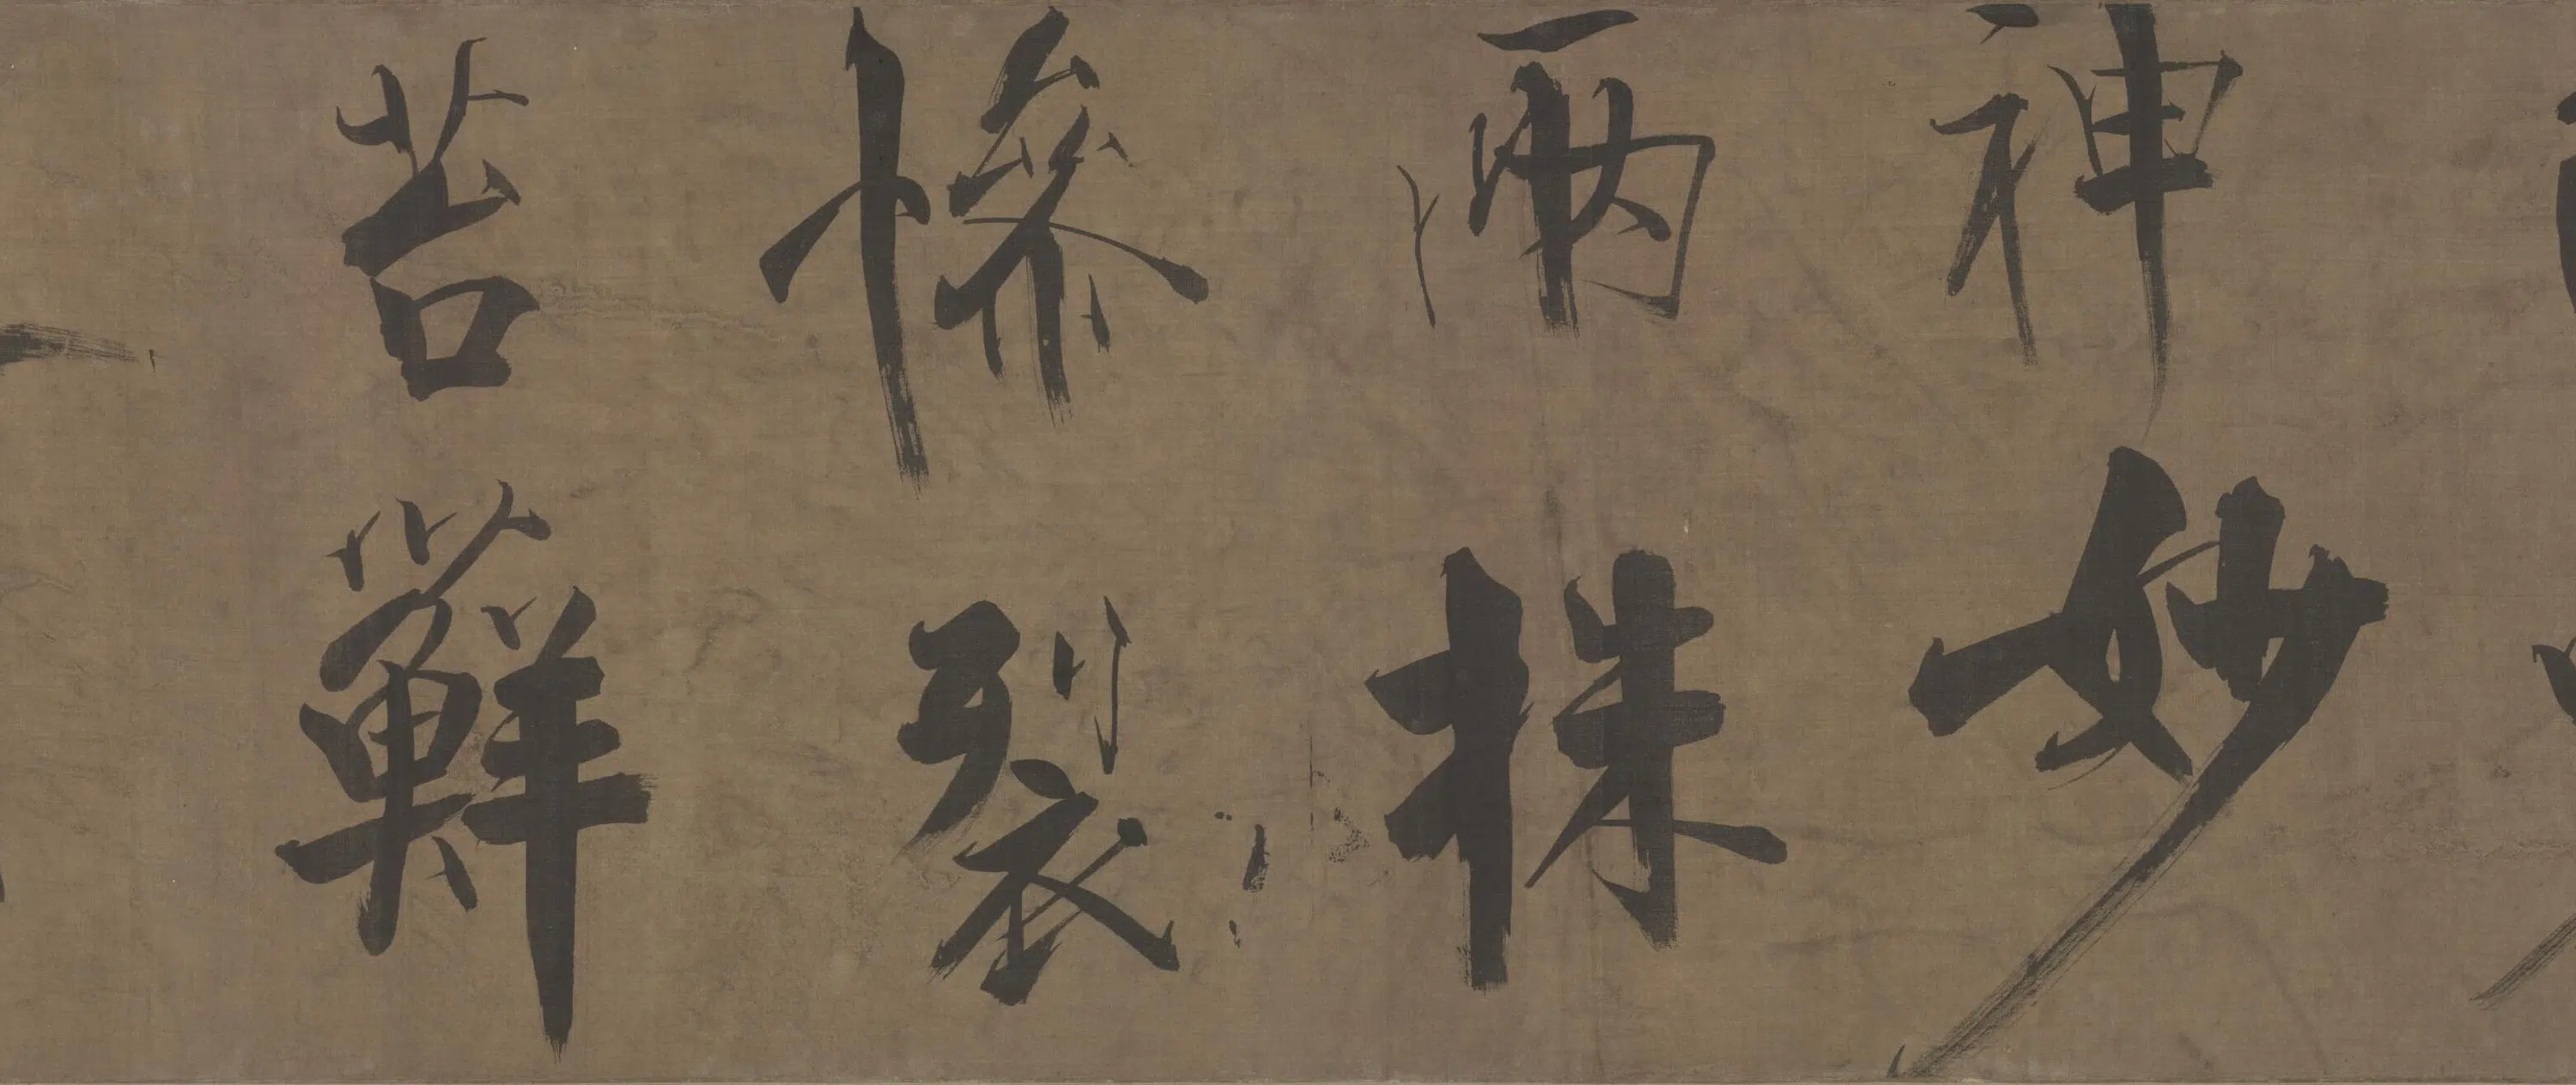 神妙
兩株
慘裂
苔蘚